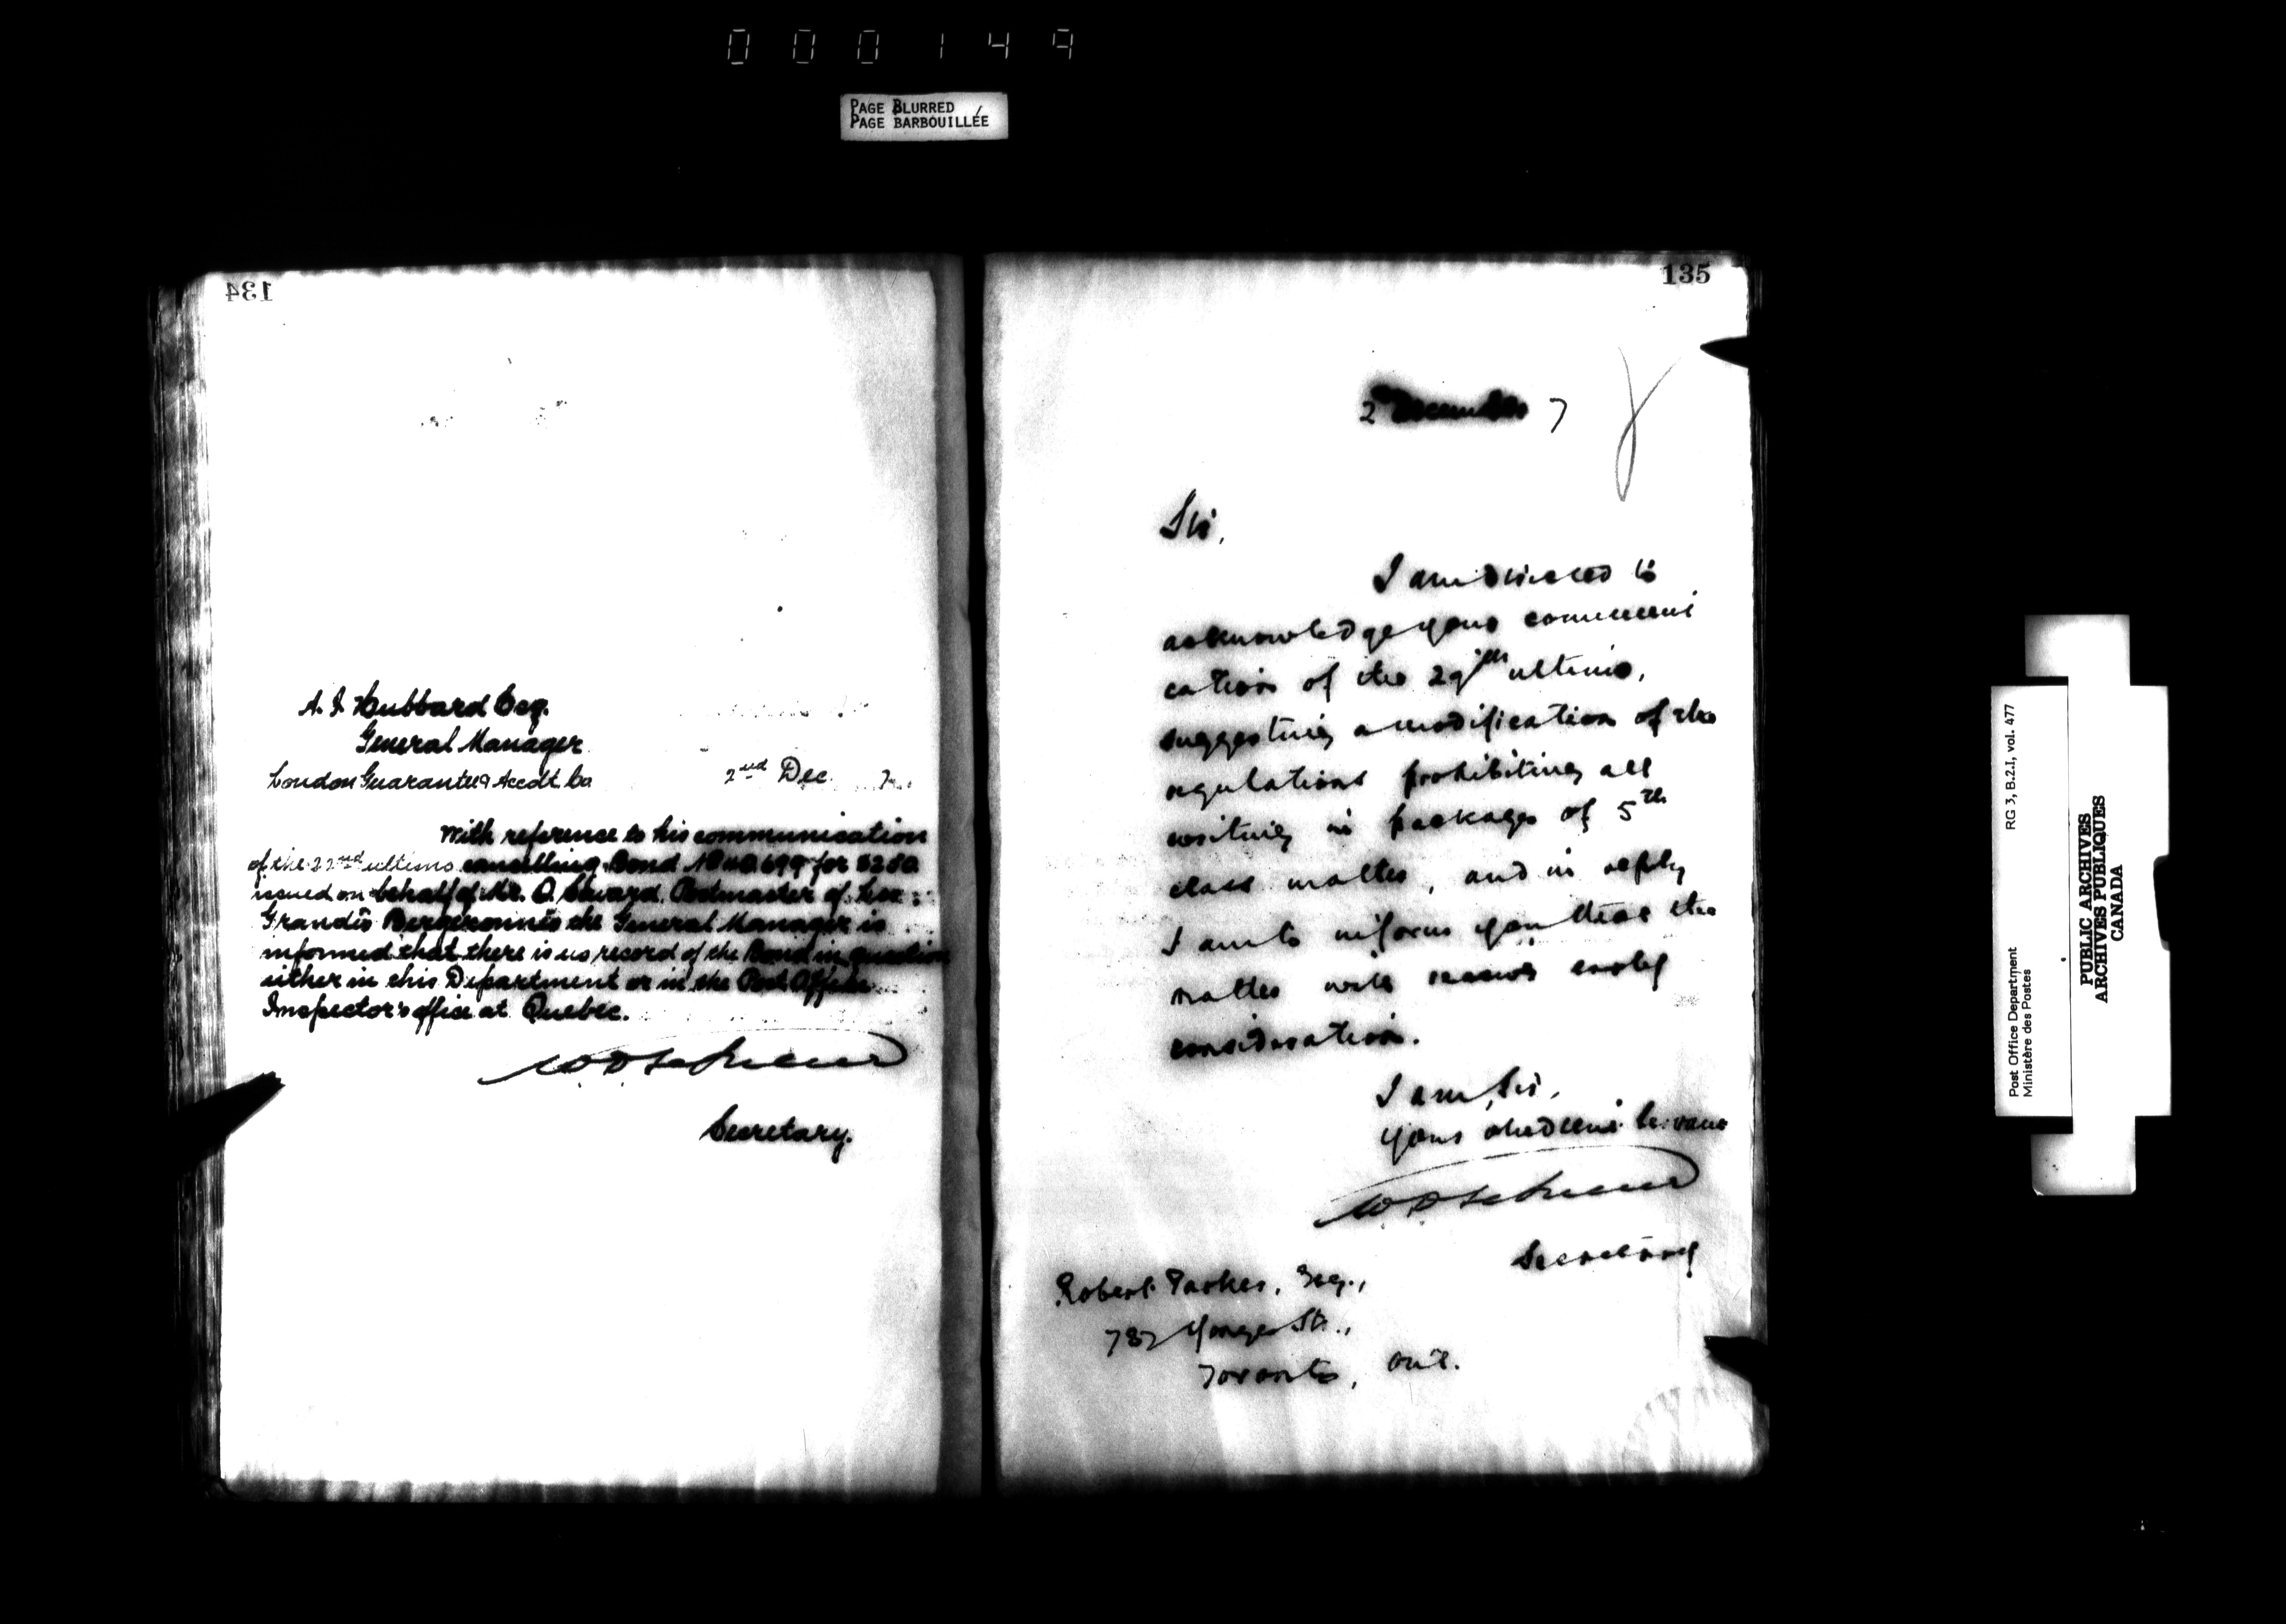 000149
PAGE BLURRED
PAGE BARBOUILLÉE
134
A. I. Hubbard Esq.
General Manager
London Guarantee & Accdt. Co
2nd Dec. 7
With reference to his communication
of the 22nd ultimo cancelling Bond for $250
issued on behalf of Mr. O. Postmaster of Les
Grandes Bergeronnes the General Manager is
informed that there is no record of the Bond in question
either in this Department or in the Post Office
Inspector's office at Quebec.
Secretary.
135
2nd December 7
Sir,
I am directed to
acknowledge your communi
cation of the 29th ultimo,
suggesting a modification of the
regulations prohibiting all
writing in packages of 5th
class matter, and in reply
I am to inform you that the
matter will receive early
consideration.
I am, Sir,
Your obedient Servant
Secretary
Robert Parker, Esq.,
787 Yonge St.,
Toronto, Ont.
RG 3, B.2.I, vol. 477
Post Office Department
Ministère des Postes
PUBLIC ARCHIVES
ARCHIVES PUBLIQUES
CANADA